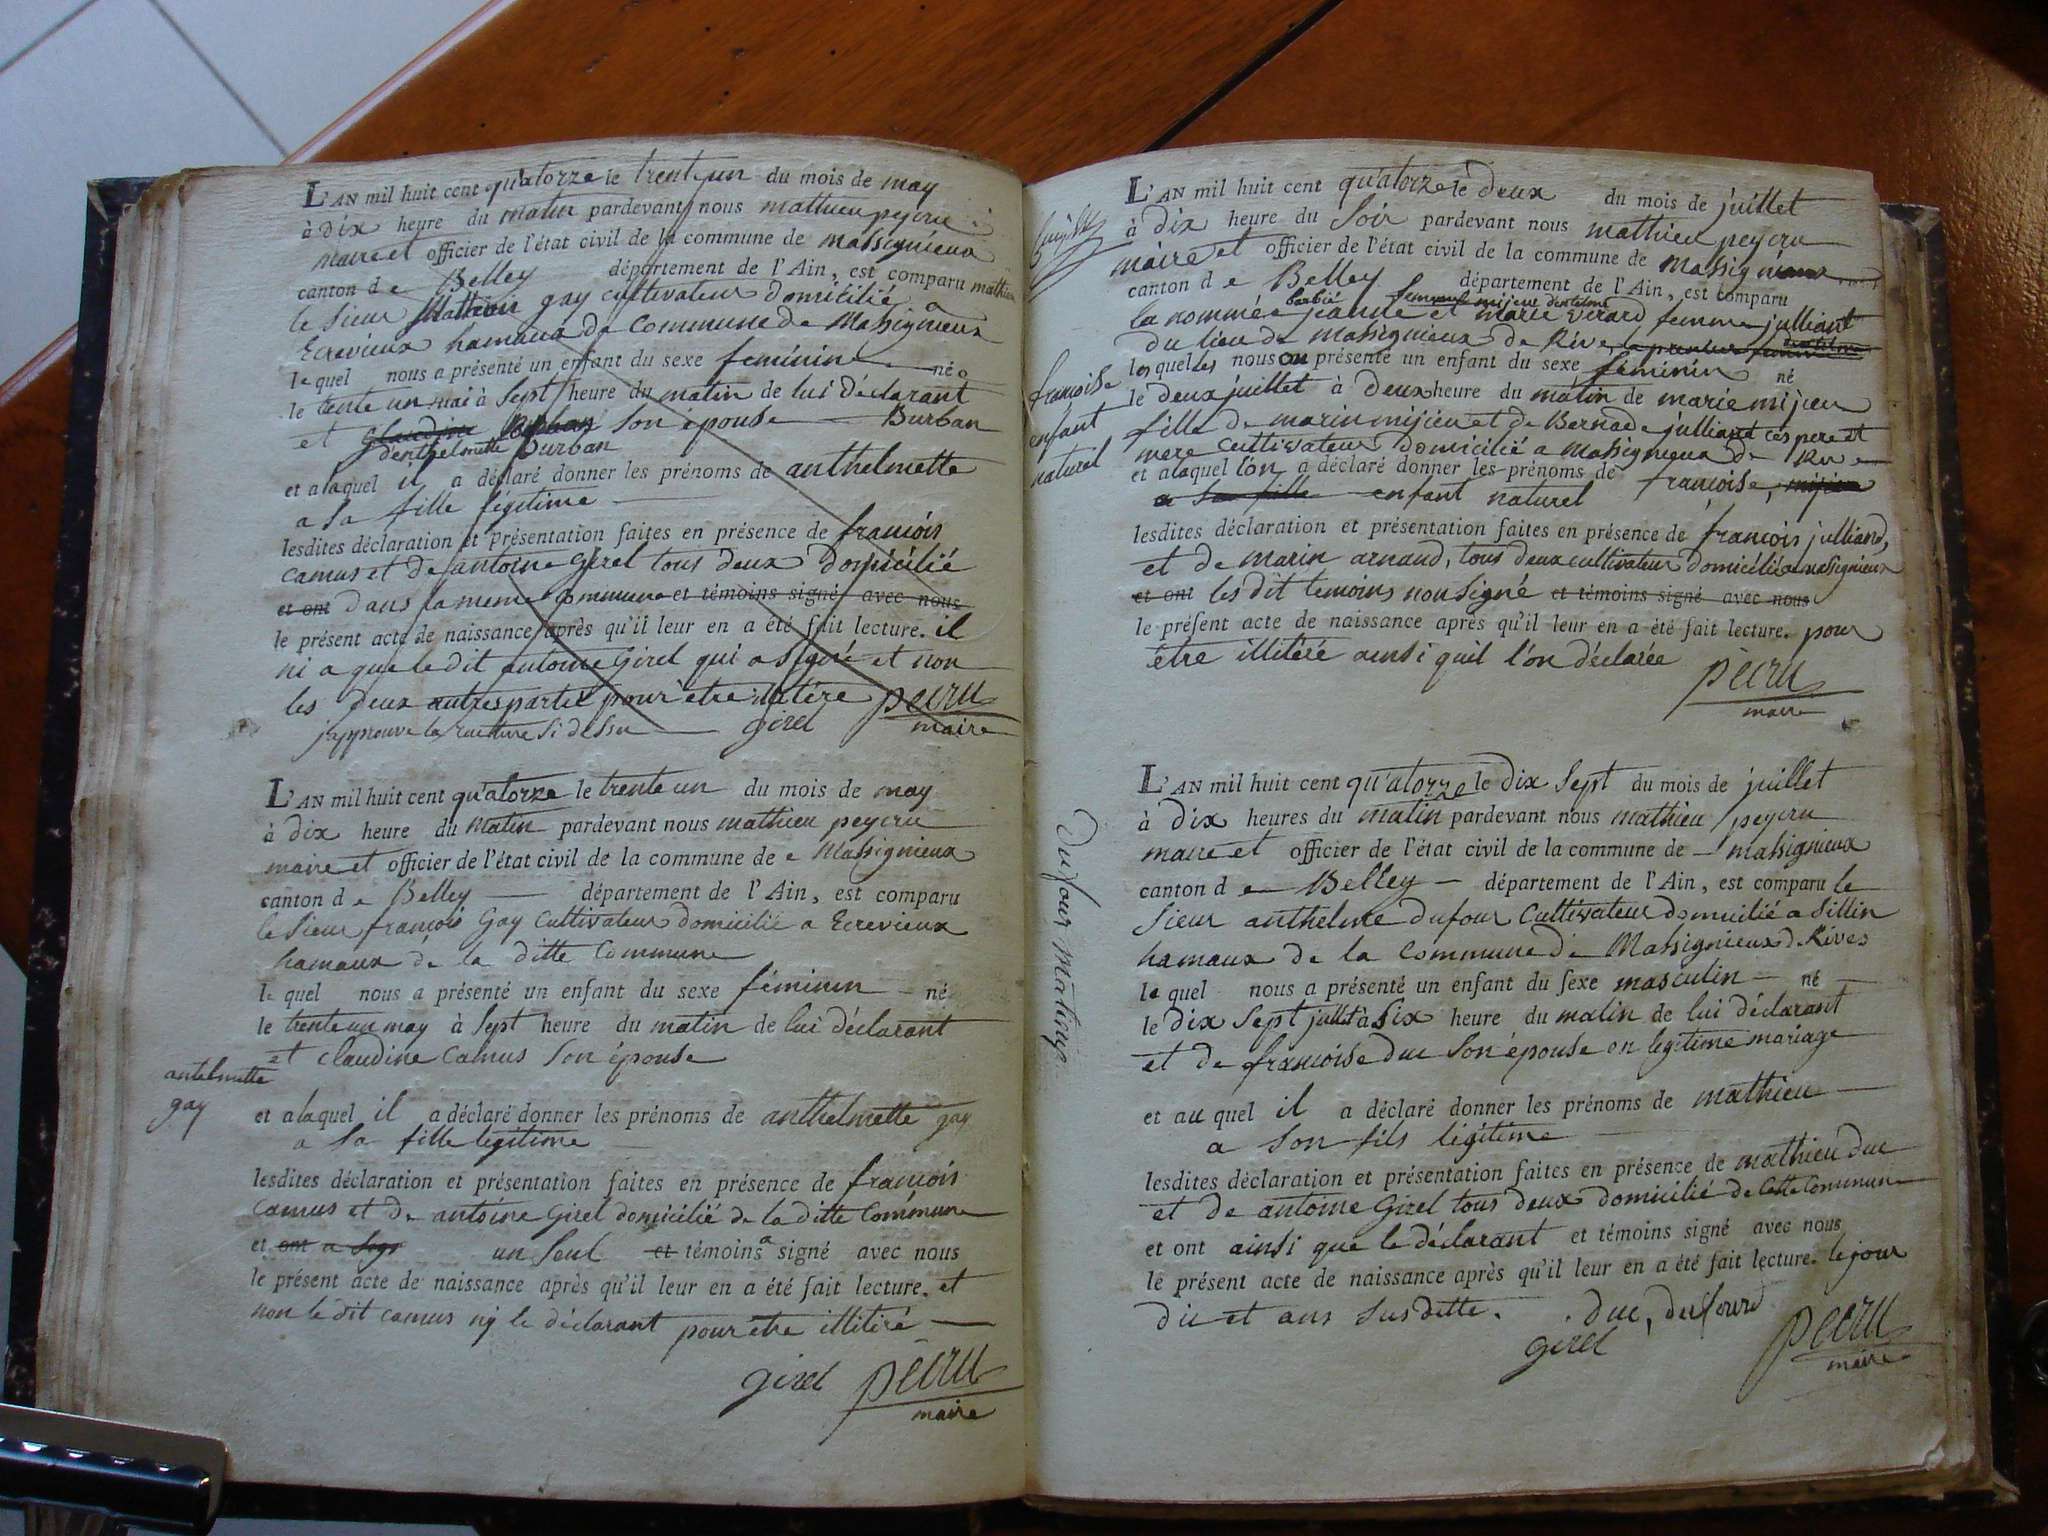 L'AN mil huit cent qu'atorze le trente un du mois de may
à dix heure du matin pardevant nous mathieu peycru
maire et officier de l'état civil de la commune de Massignieux
canton de Belley département de l'Ain, est comparu mathieu
le sieur gay cultivateur domicilié a
Ecrevieux hamaux de commune de Massignieux
lequel nous a présenté un enfant du sexe feminin né
le trente un mai à sept heure du matin de lui déclarant
et son épouse Burban
denthelmette Burban
et alaquel il a déclaré donner les prénoms de anthelmette
a sa fille légitime
lesdites déclaration et présentation faites en présence de francois
camus et de antoine Girel tous deux domicilié
et ont dans la meme commune et témoins signé avec nous
le présent acte de naissance après qu'il leur en a été fait lecture. il
ni a que le dit antoine Girel qui a signé et non
les deux autres partit pour être
japprouve la si desu girel pecru
maire
L'AN mil huit cent qu'atorze le trente un du mois de may
à dix heure du matin pardevant nous mathieu peycru
maire et officier de l'état civil de la commune de Massignieux
canton de Belley département de l'Ain, est comparu
le sieur francois Gay cultivateur domicilié a Ecrevieux
hamaux de la ditte commune
lequel nous a présenté un enfant du sexe féminin né
le trente un may à sept heure du matin de lui déclarant
et claudine camus son épouse
antelmette
gay
et alaquel il a déclaré donner les prénoms de anthelmette gay
a sa fille legitime
lesdites déclaration et présentation faites en présence de francois
camus et de antoine Girel domicilié de la ditte commune
et ont un seul et témoins a signé avec nous
le présent acte de naissance après qu'il leur en a été fait lecture. et
non le dit camus ny le déclarant pour être illitiré
girel pecru
maire
L'AN mil huit cent qu'atorze le deux du mois de juillet
à dix heure du soir pardevant nous mathieu peycru
maire et officier de l'état civil de la commune de Massignieux
canton de Belley département de l'Ain, est comparu
barbié femme mijeu
la nommée jeanne et marie verard femme julliant
du lieu de massignieux de Rive
lesquelles nous on présenté un enfant du sexe féminin né
le deux juillet à deux heure du matin de marie mijeu
francoise
enfant
naturel
fille de marin mijeu et de Bernade julliant ces pere et
mere cultivateur domicilié a Massignieux de Rive
et alaquel l'on a déclaré donner les prénoms de francoise,
a sa fille enfant naturel
lesdites déclaration et présentation faites en présence de francois julliand,
et de marin arnaud, tous deux cultivateur domicilié a massignieux
et ont les dit temoins non signé et témoins signé avec nous
le présent acte de naissance après qu'il leur en a été fait lecture. pour
être illitéré ainsi quil l'on déclarée
pecru
maire
L'AN mil huit cent qu'atorze le dix sept du mois de juillet
à dix heures du matin pardevant nous mathieu peycru
maire et officier de l'état civil de la commune de massignieux
canton de Belley département de l'Ain, est comparu le
sieur anthelme dufour cultivateur domicilié a sillin
hamaux de la commune de Massignieux d. Rives
lequel nous a présenté un enfant du sexe masculin né
le dix sept jullet à six heure du matin de lui déclarant
et de francoise duc son épouse en legitime mariage
Dufour
et au quel il a déclaré donner les prénoms de mathieu
a son fils légitime
lesdites déclaration et présentation faites en présence de mathieu duc
et de antoine Girel tous deux domicilié de cette commune
et ont ainsi que le déclarant et témoins signé avec nous
le présent acte de naissance après qu'il leur en a été fait lecture. le jour
dit et ans susditte. duc, dufour
girel pecru
maire